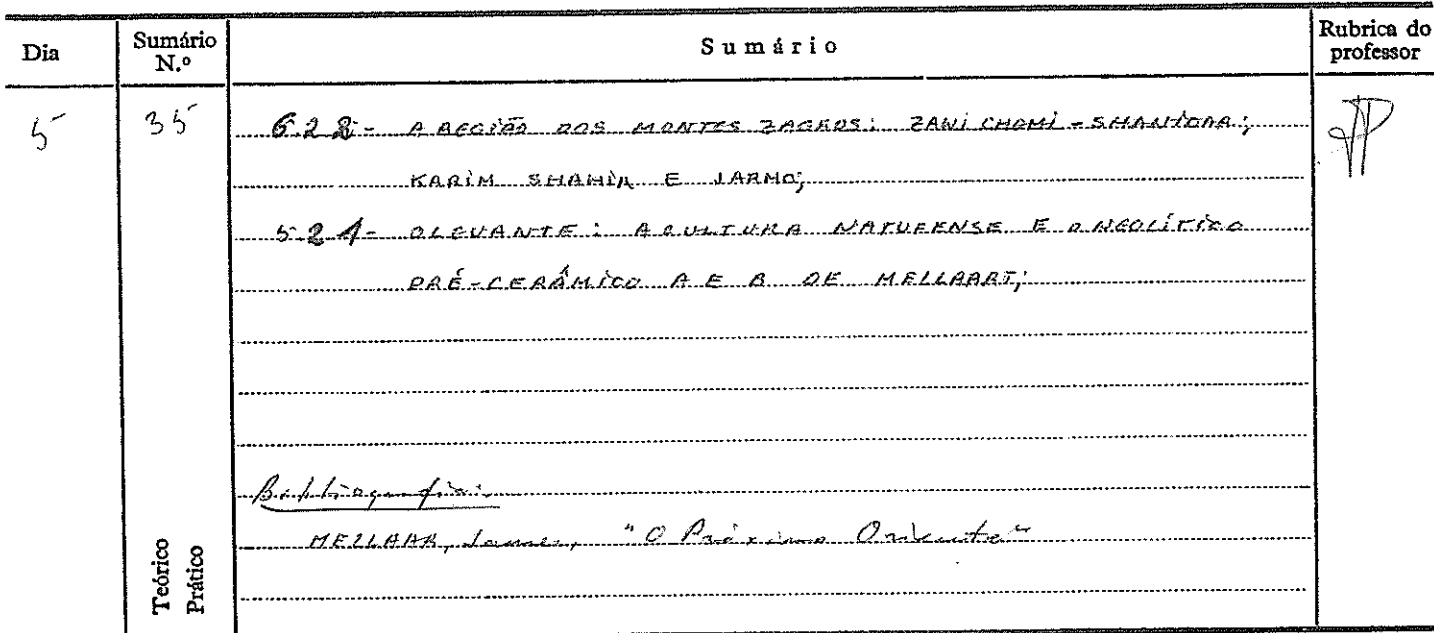 Dia
Sumário N.º
Sumário
Rubrica do professor
5
35
6.2.2- A REGIÃO DOS MONTES ZAGROS: ZAWI CHAMI - SHANIDAR;
KARIM SHAHIR E JARMO;
5.2.1- O LEVANTE: A CULTURA NATUFENSE E O NEOLÍTICO
PRÉ-CERÂMICO A E B DE MELLAART;
Bibliografia:
MELLAAR, James, "O Próximo Oriente"
Teórico
Prático